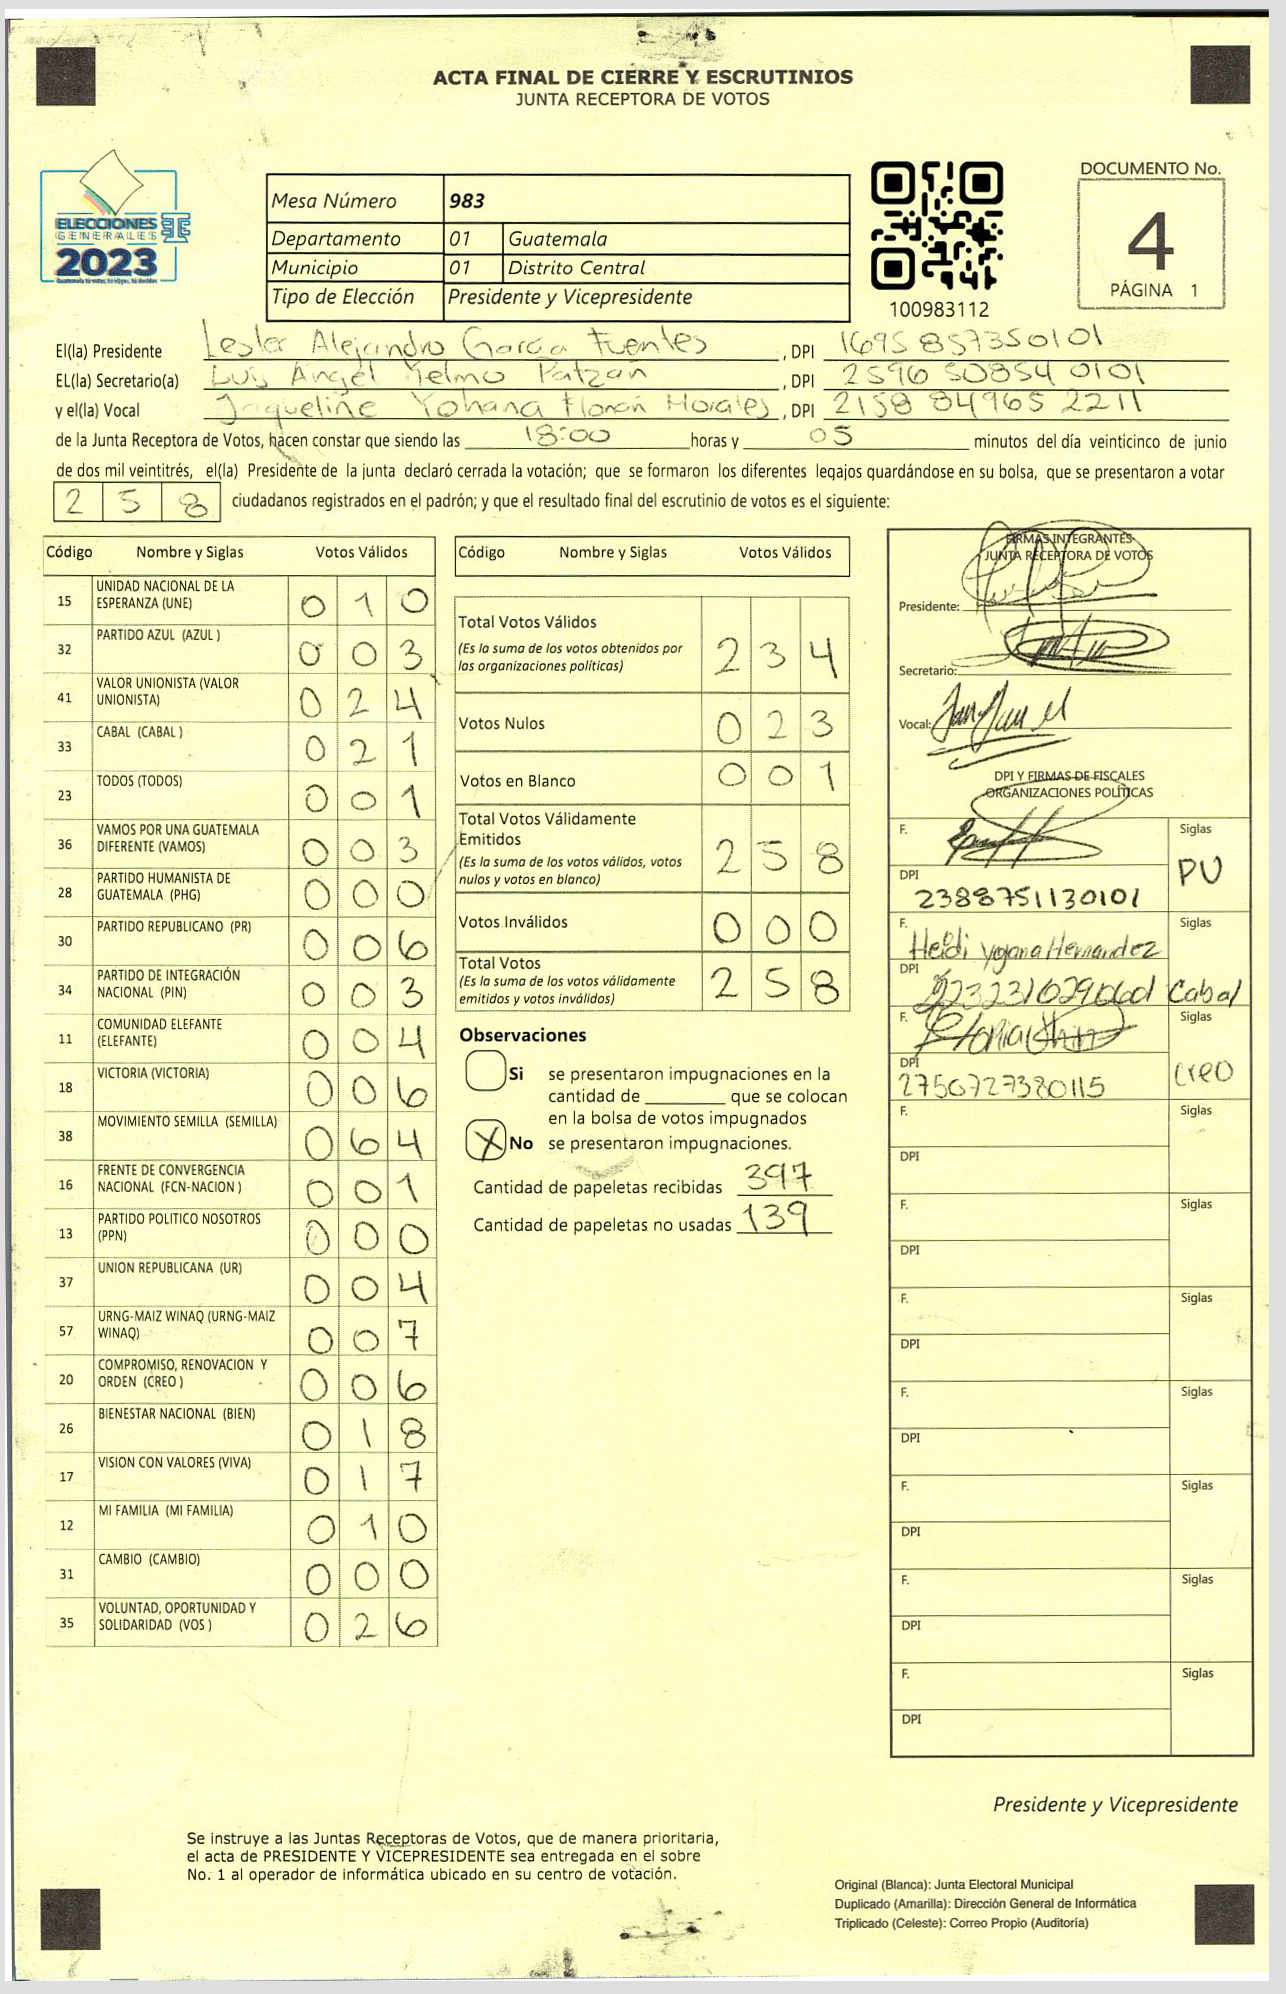 ACTA FINAL DE CIERRE Y ESCRUTINIOS
JUNTA RECEPTORA DE VOTOS
ELECCIONES
GENERALES
2023
Mesa Número 983
Departamento 01 Guatemala
Municipio 01 Distrito Central
Tipo de Elección Presidente y Vicepresidente
100983112
DOCUMENTO No.
4
PÁGINA 1
El(la) Presidente Lester Alejandro García Fuentes, DPI 1695 85735 0101
EL(la) Secretario(a) Luis Angel Telmo Patzán, DPI 2596 50854 0101
y el(la) Vocal Jaqueline Yohana Florián Morales, DPI 2158 84965 2211
de la Junta Receptora de Votos, hacen constar que siendo las 18:00 horas y 05 minutos del día veinticinco de junio
de dos mil veintitrés, el(la) Presidente de la junta declaró cerrada la votación; que se formaron los diferentes legajos guardándose en su bolsa, que se presentaron a votar
258 ciudadanos registrados en el padrón; y que el resultado final del escrutinio de votos es el siguiente:
Código Nombre y Siglas Votos Válidos
15 UNIDAD NACIONAL DE LA
ESPERANZA (UNE) 010
32 PARTIDO AZUL (AZUL ) 003
41 VALOR UNIONISTA (VALOR
UNIONISTA) 024
33 CABAL (CABAL ) 021
23 TODOS (TODOS) 001
36 VAMOS POR UNA GUATEMALA
DIFERENTE (VAMOS) 003
28 PARTIDO HUMANISTA DE
GUATEMALA (PHG) 000
30 PARTIDO REPUBLICANO (PR) 006
34 PARTIDO DE INTEGRACIÓN
NACIONAL (PIN) 003
11 COMUNIDAD ELEFANTE
(ELEFANTE) 004
18 VICTORIA (VICTORIA) 006
38 MOVIMIENTO SEMILLA (SEMILLA) 064
16 FRENTE DE CONVERGENCIA
NACIONAL (FCN-NACION ) 001
13 PARTIDO POLITICO NOSOTROS
(PPN) 000
37 UNION REPUBLICANA (UR) 004
57 URNG-MAIZ WINAQ (URNG-MAIZ
WINAQ) 007
20 COMPROMISO, RENOVACION Y
ORDEN (CREO ) 006
26 BIENESTAR NACIONAL (BIEN) 018
17 VISION CON VALORES (VIVA) 017
12 MI FAMILIA (MI FAMILIA) 010
31 CAMBIO (CAMBIO) 000
35 VOLUNTAD, OPORTUNIDAD Y
SOLIDARIDAD (VOS ) 026
Código Nombre y Siglas Votos Válidos
Total Votos Válidos
(Es la suma de los votos obtenidos por
las organizaciones políticas) 234
Votos Nulos 023
Votos en Blanco 001
Total Votos Válidamente
Emitidos
(Es la suma de los votos válidos, votos
nulos y votos en blanco) 258
Votos Inválidos 000
Total Votos
(Es la suma de los votos válidamente
emitidos y votos inválidos) 258
Observaciones
Si se presentaron impugnaciones en la
cantidad de ________ que se colocan
en la bolsa de votos impugnados
X No se presentaron impugnaciones.
Cantidad de papeletas recibidas 397
Cantidad de papeletas no usadas 139
FIRMAS INTEGRANTES
JUNTA RECEPTORA DE VOTOS
Presidente:
Secretario:
Vocal:
DPI Y FIRMAS DE FISCALES
ORGANIZACIONES POLÍTICAS
F. Siglas
PU
DPI
2388751130101
F. Siglas
Heidi Hernandez
DPI
Cabal
F. Siglas
DPI
2750727380115 Creo
F. Siglas
DPI
F. Siglas
DPI
F. Siglas
DPI
F. Siglas
DPI
F. Siglas
DPI
F. Siglas
DPI
F. Siglas
DPI
Presidente y Vicepresidente
Se instruye a las Juntas Receptoras de Votos, que de manera prioritaria,
el acta de PRESIDENTE Y VICEPRESIDENTE sea entregada en el sobre
No. 1 al operador de informática ubicado en su centro de votación.
Original (Blanca): Junta Electoral Municipal
Duplicado (Amarilla): Dirección General de Informática
Triplicado (Celeste): Correo Propio (Auditoría)